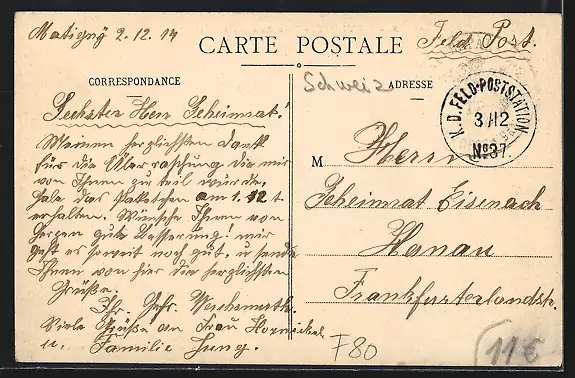 Matigny 2.12.14
CARTE POSTALE
Feld Post.
CORRESPONDANCE
Schweiz
ADRESSE
K.D. FELD-POSTSTATION
3/12
No 37.
Geehrter Herr Geheimrat!
Meinen herzlichsten Dank
für die Überraschung die mir
von Ihnen zu teil wurde,
habe das Paketchen am 1.12 t
erhalten. Wünsche Ihnen von
Herzen gute Besserung! mir
geht es soweit noch gut, u. sende
Ihnen von hier die herzlichsten
Grüße.
Ihr
Viele Grüße an Frau Hornickel
u. Familie Jung.
M
Herrn
Geheimrat Eisenach
Hanau
Frankfurterlandstr.
F80
11€